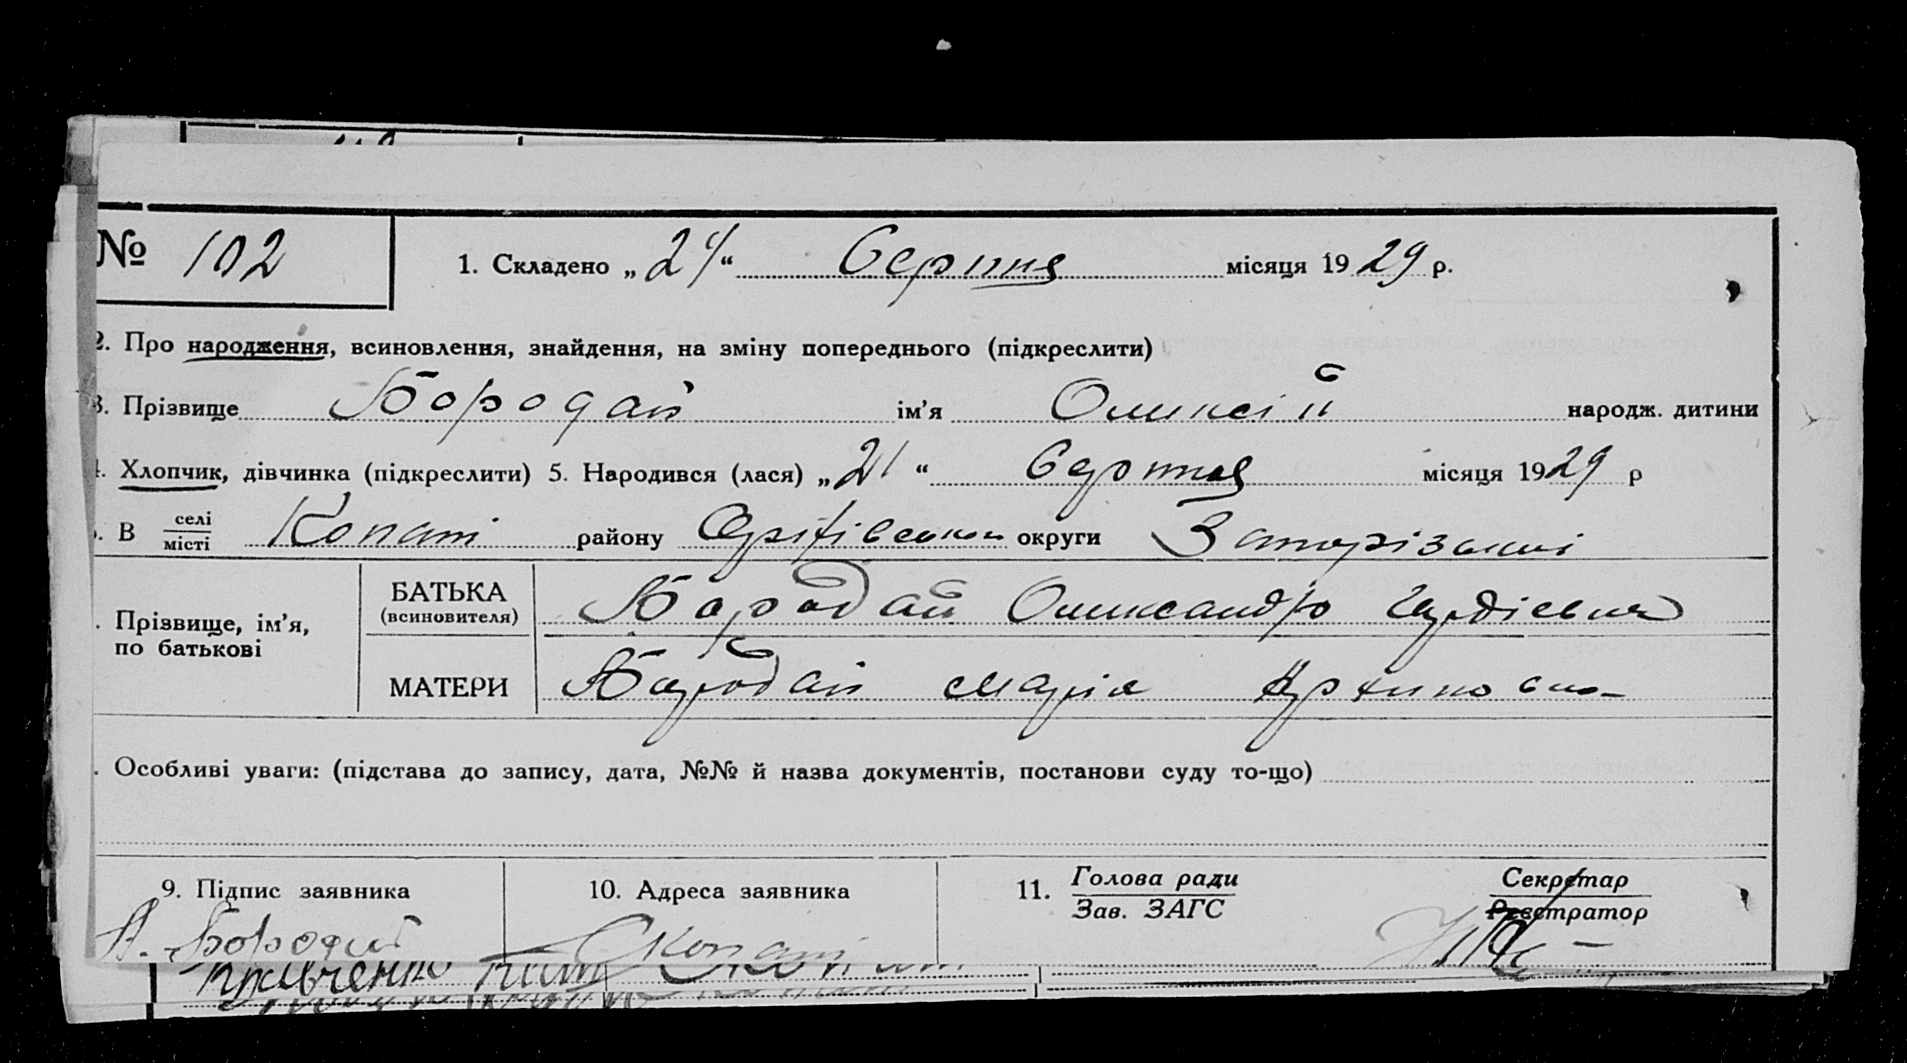 № 102 1. Складено „24“ Серпня місяця 1929 р.
2. Про народження, всиновлення, знайдення, на зміну попереднього (підкреслити)
3. Прізвище Бородай ім’я Олексій народж. дитини
4. Хлопчик, дівчинка (підкреслити) 5. Народився (лася) „21“ Серпня місяця 1929 р
. В селі Копані району округи Запорізької
місті
. Прізвище, ім’я,
по батькові
БАТЬКА Бородай Олександр
(всиновителя)
МАТЕРИ Бородай Марія
. Особливі уваги: (підстава до запису, дата, №№ й назва документів, постанови суду то-що)
9. Підпис заявника 10. Адреса заявника 11. Голова ради Секретар
Зав. ЗАГС Реєстратор
А. Бородай С Копані